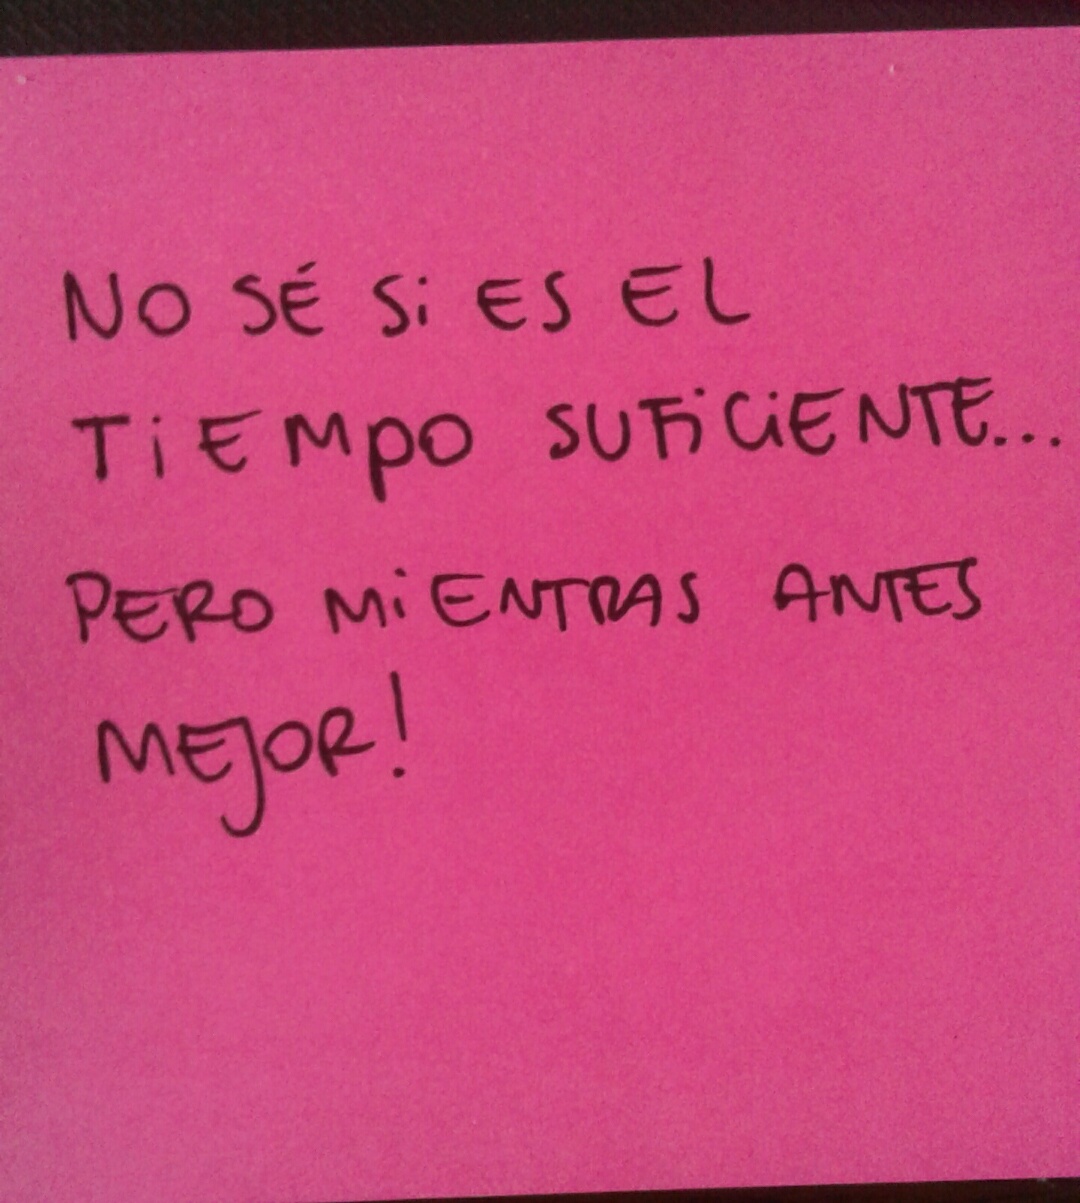 NO SÉ Si ES EL
TiEMpO SUFiCiENTE...
PERO MiENTRAS ANTES
MEJOR!